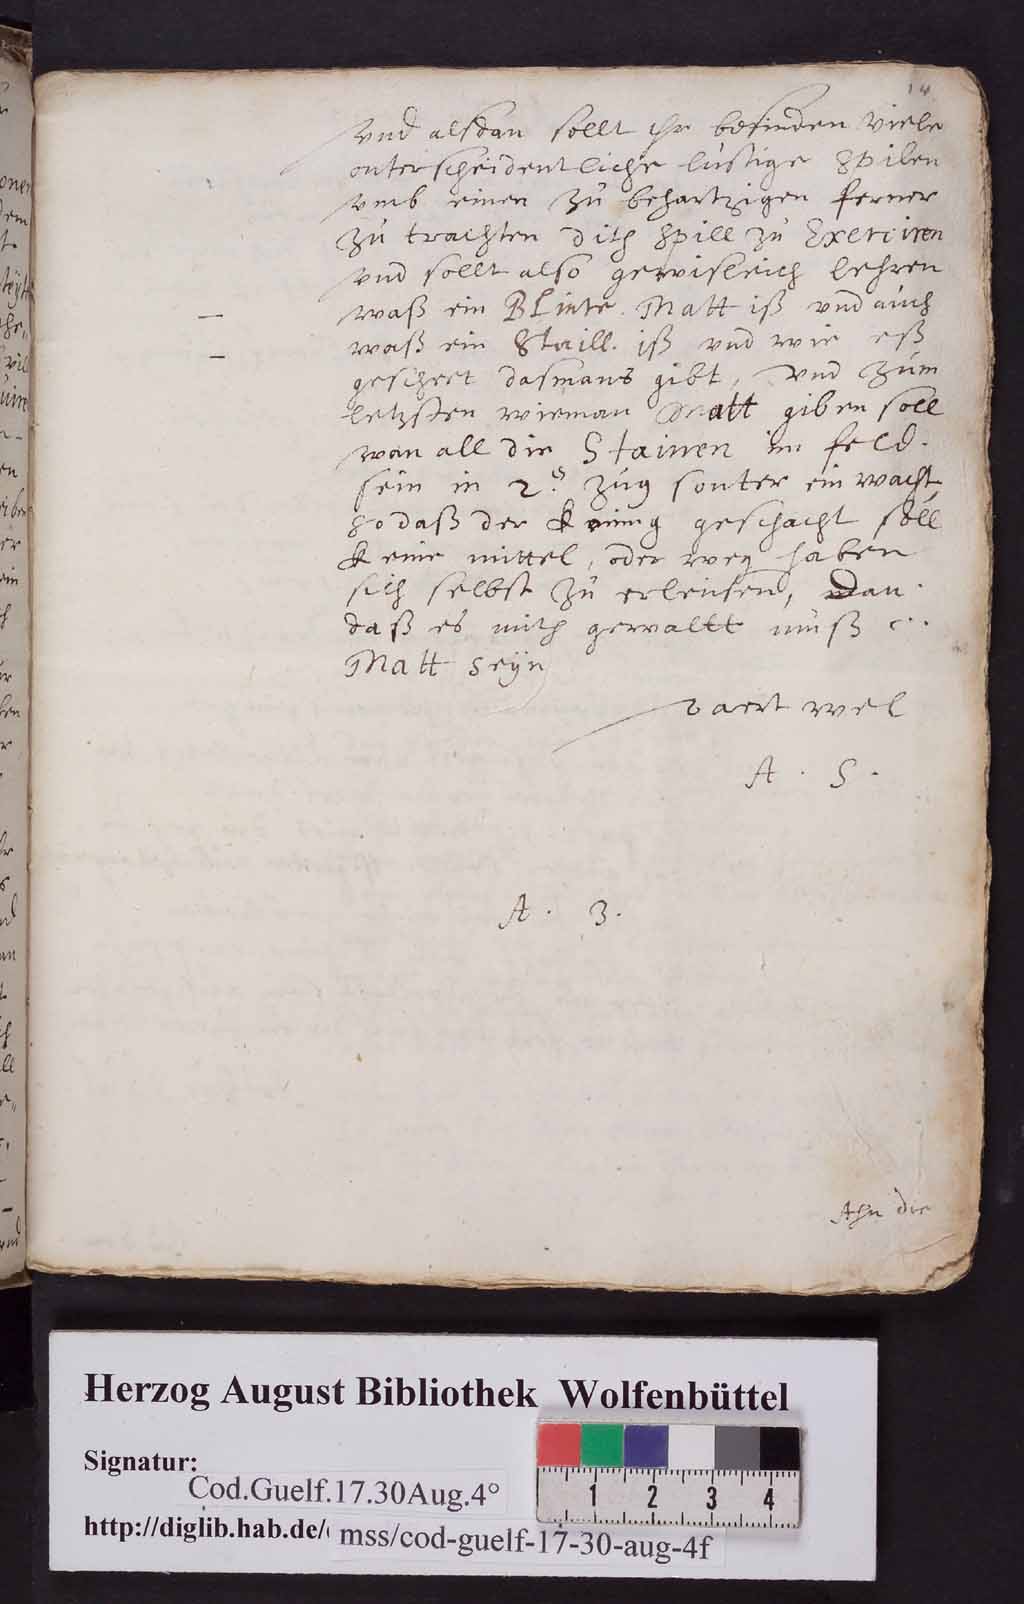 14
vnd alsdan sollt ihr befinden viele
onterscheidentliche lustige Spilen
vmb einen zu behartzigen ferner
zu trachten dith Spill zu Exerciren
vnd sollt also gewisleich lehren
– waß ein BLinte. Matt iß vnd auch
– waß ein Staill. iß vnd wie eß
gescheet dasmans gibt, vnd zum
letzsten wieman Matt giben soll
wan all die Stainen im feld.
sein in 2. zug sonter ein wacht
so daß der Koning geschacht soll
Keine mittel, oder weg haben
sich selbst zu erleusen, Dan
daß es mith gewaltt muß
Matt seÿn
vaert wel
A . S .
A . 3.
Ahn die
Herzog August Bibliothek Wolfenbüttel
Signatur:
Cod.Guelf.17.30Aug.4°
http://diglib.hab.de/
mss/cod-guelf-17-30-aug-4f
1 2 3 4